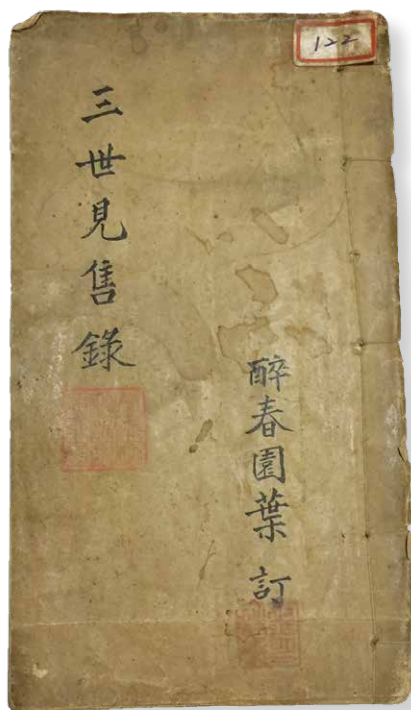 122
三世見售錄
醉春園葉訂